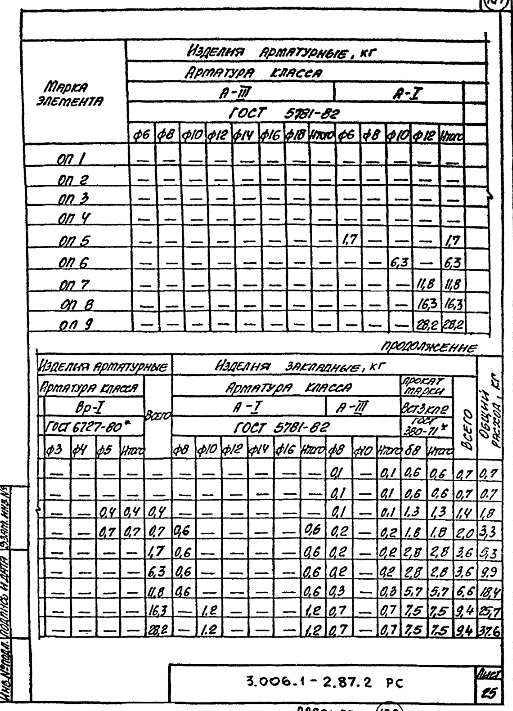 Изделия арматурные, кг
Арматура класса
Марка элемента
А-III А-I
ГОСТ 5781-82
ф6 ф8 ф10 ф12 ф14 ф16 ф18 Итого ф6 ф8 ф10 ф12 Итого
ОП 1 — — — — — — — — — — — — —
ОП 2 — — — — — — — — — — — — —
ОП 3 — — — — — — — — — — — — —
ОП 4 — — — — — — — — — — — — —
ОП 5 — — — — — — — — 1,7 — — — 1,7
ОП 6 — — — — — — — — — — 6,3 — 6,3
ОП 7 — — — — — — — — — — — 11,8 11,8
ОП 8 — — — — — — — — — — — 16,3 16,3
ОП 9 — — — — — — — — — — — 28,2 28,2
продолжение
Изделия арматурные Изделия закладные, кг
Арматура класса Всего Арматура класса Прокат марки Всего Общий расход, кг
Вр-I А-I А-III Вст3кп2
ГОСТ 6727-80* ГОСТ 5781-82 ГОСТ 380-71*
ф3 ф4 ф5 Итого ф8 ф10 ф12 ф14 ф16 Итого ф8 ф10 Итого δ8 Итого
— — — — — — — — — — — 0,1 — 0,1 0,6 0,6 0,7 0,7
— — — — — — — — — — — 0,1 — 0,1 0,6 0,6 0,7 0,7
— — 0,4 0,4 0,4 — — — — — — 0,1 — 0,1 1,3 1,3 1,4 1,8
— — 0,7 0,7 0,7 0,6 — — — — 0,6 0,2 — 0,2 1,8 1,8 2,0 3,3
— — — — 1,7 0,6 — — — — 0,6 0,2 — 0,2 2,8 2,8 3,6 5,3
— — — — 6,3 0,6 — — — — 0,6 0,2 — 0,2 2,8 2,8 3,6 9,9
— — — — 11,8 0,6 — — — — 0,6 0,3 — 0,3 5,7 5,7 6,6 18,4
— — — — 16,3 — 1,2 — — — 1,2 0,7 — 0,7 7,5 7,5 9,4 25,7
— — — — 28,2 — 1,2 — — — 1,2 0,7 — 0,7 7,5 7,5 9,4 37,6
Инв.№подл. Подпись и дата Взам.инв.№
3.006.1-2.87.2 РС
Лист
25